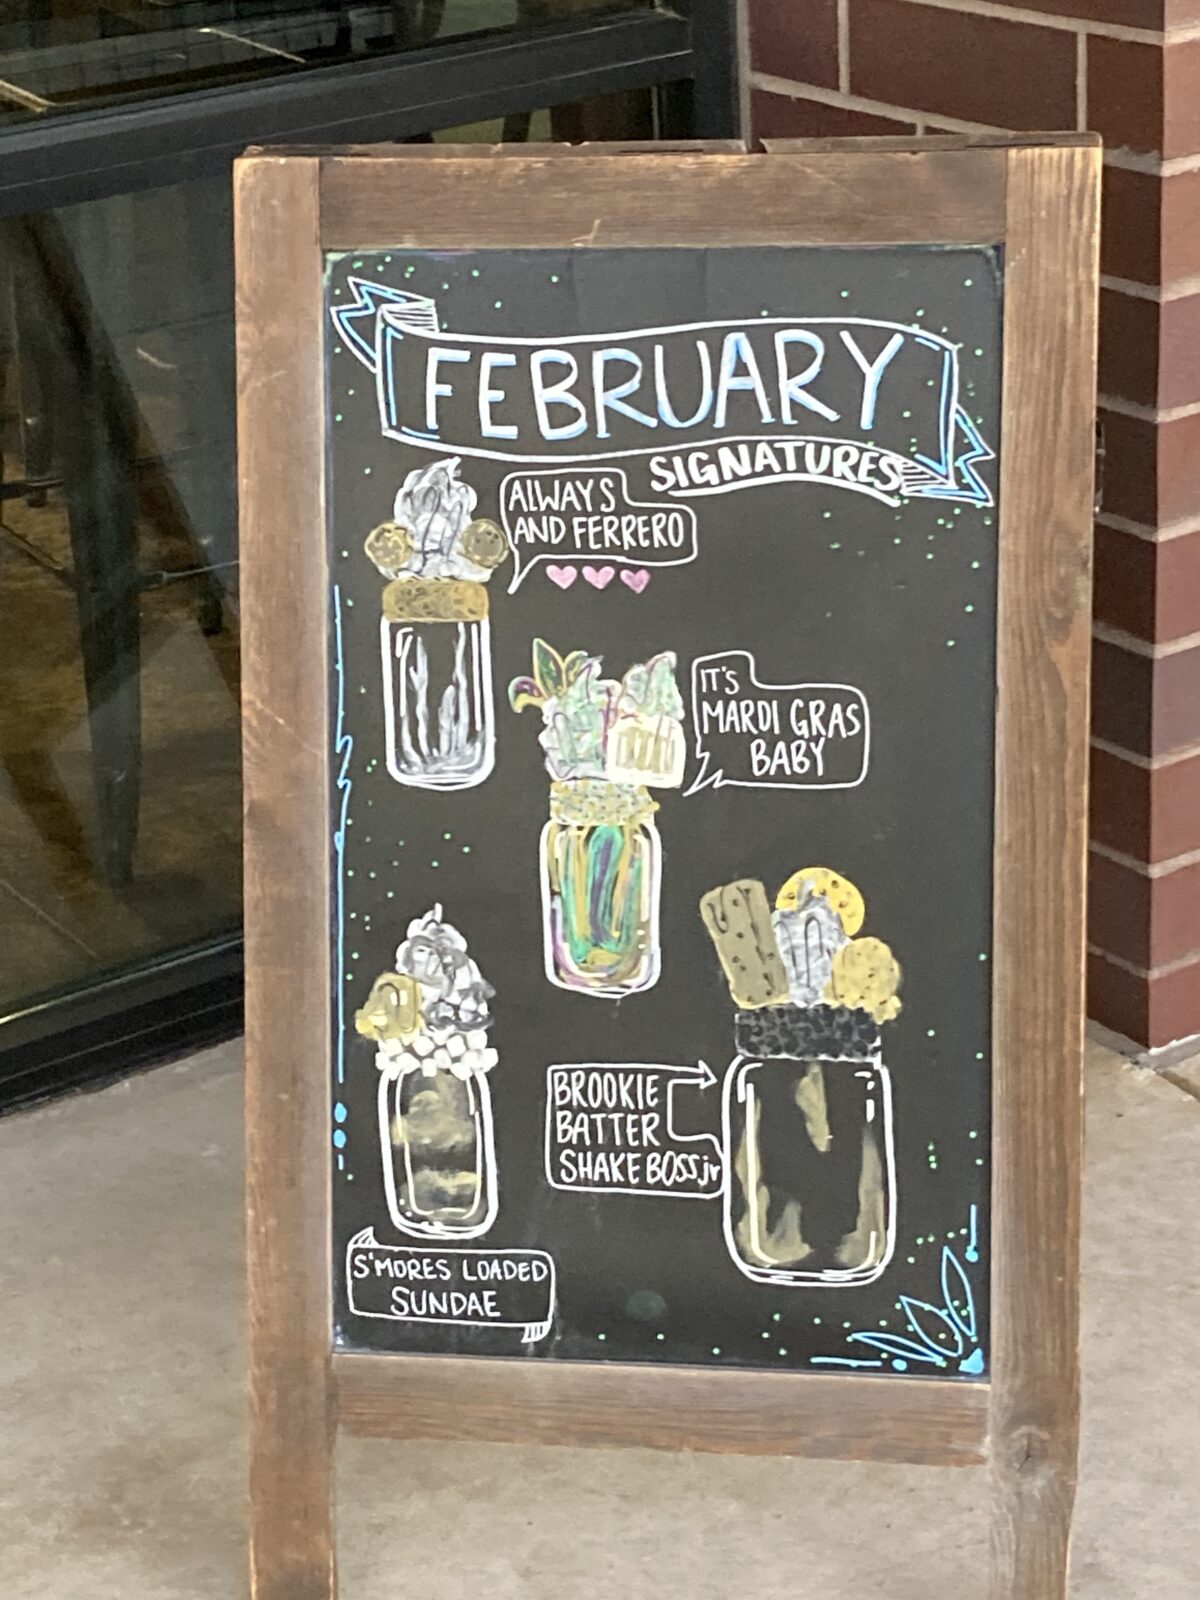 FEBRUARY
SIGNATURES
ALWAYS
AND FERRERO
IT'S
MARDI GRAS
BABY
BROOKIE
BATTER
SHAKE BOSS jr
S'MORES LOADED
SUNDAE